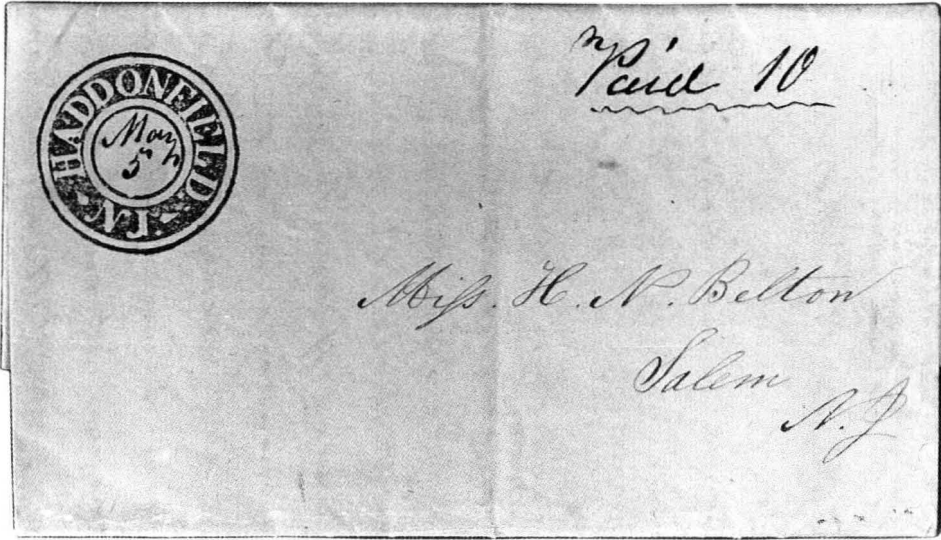 HADDONFIELD N.J.
May
5
Paid 10
Miss. H. N. Belton
Salem
N. J